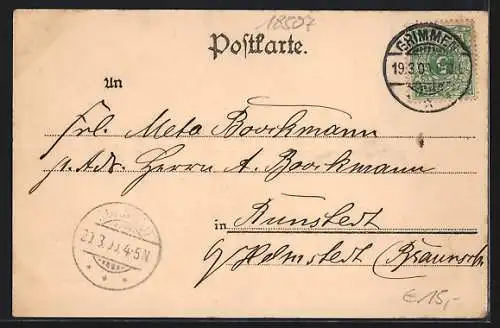 18507
Postkarte.
GRIMMEN
19.3.0
An
Frl. Meta Boockmann
p. Adr. Herrn A. Boockmann
in Runstedt
b/ Helmstedt (Braunsch.
20.3. 4-5N
€ 15,-